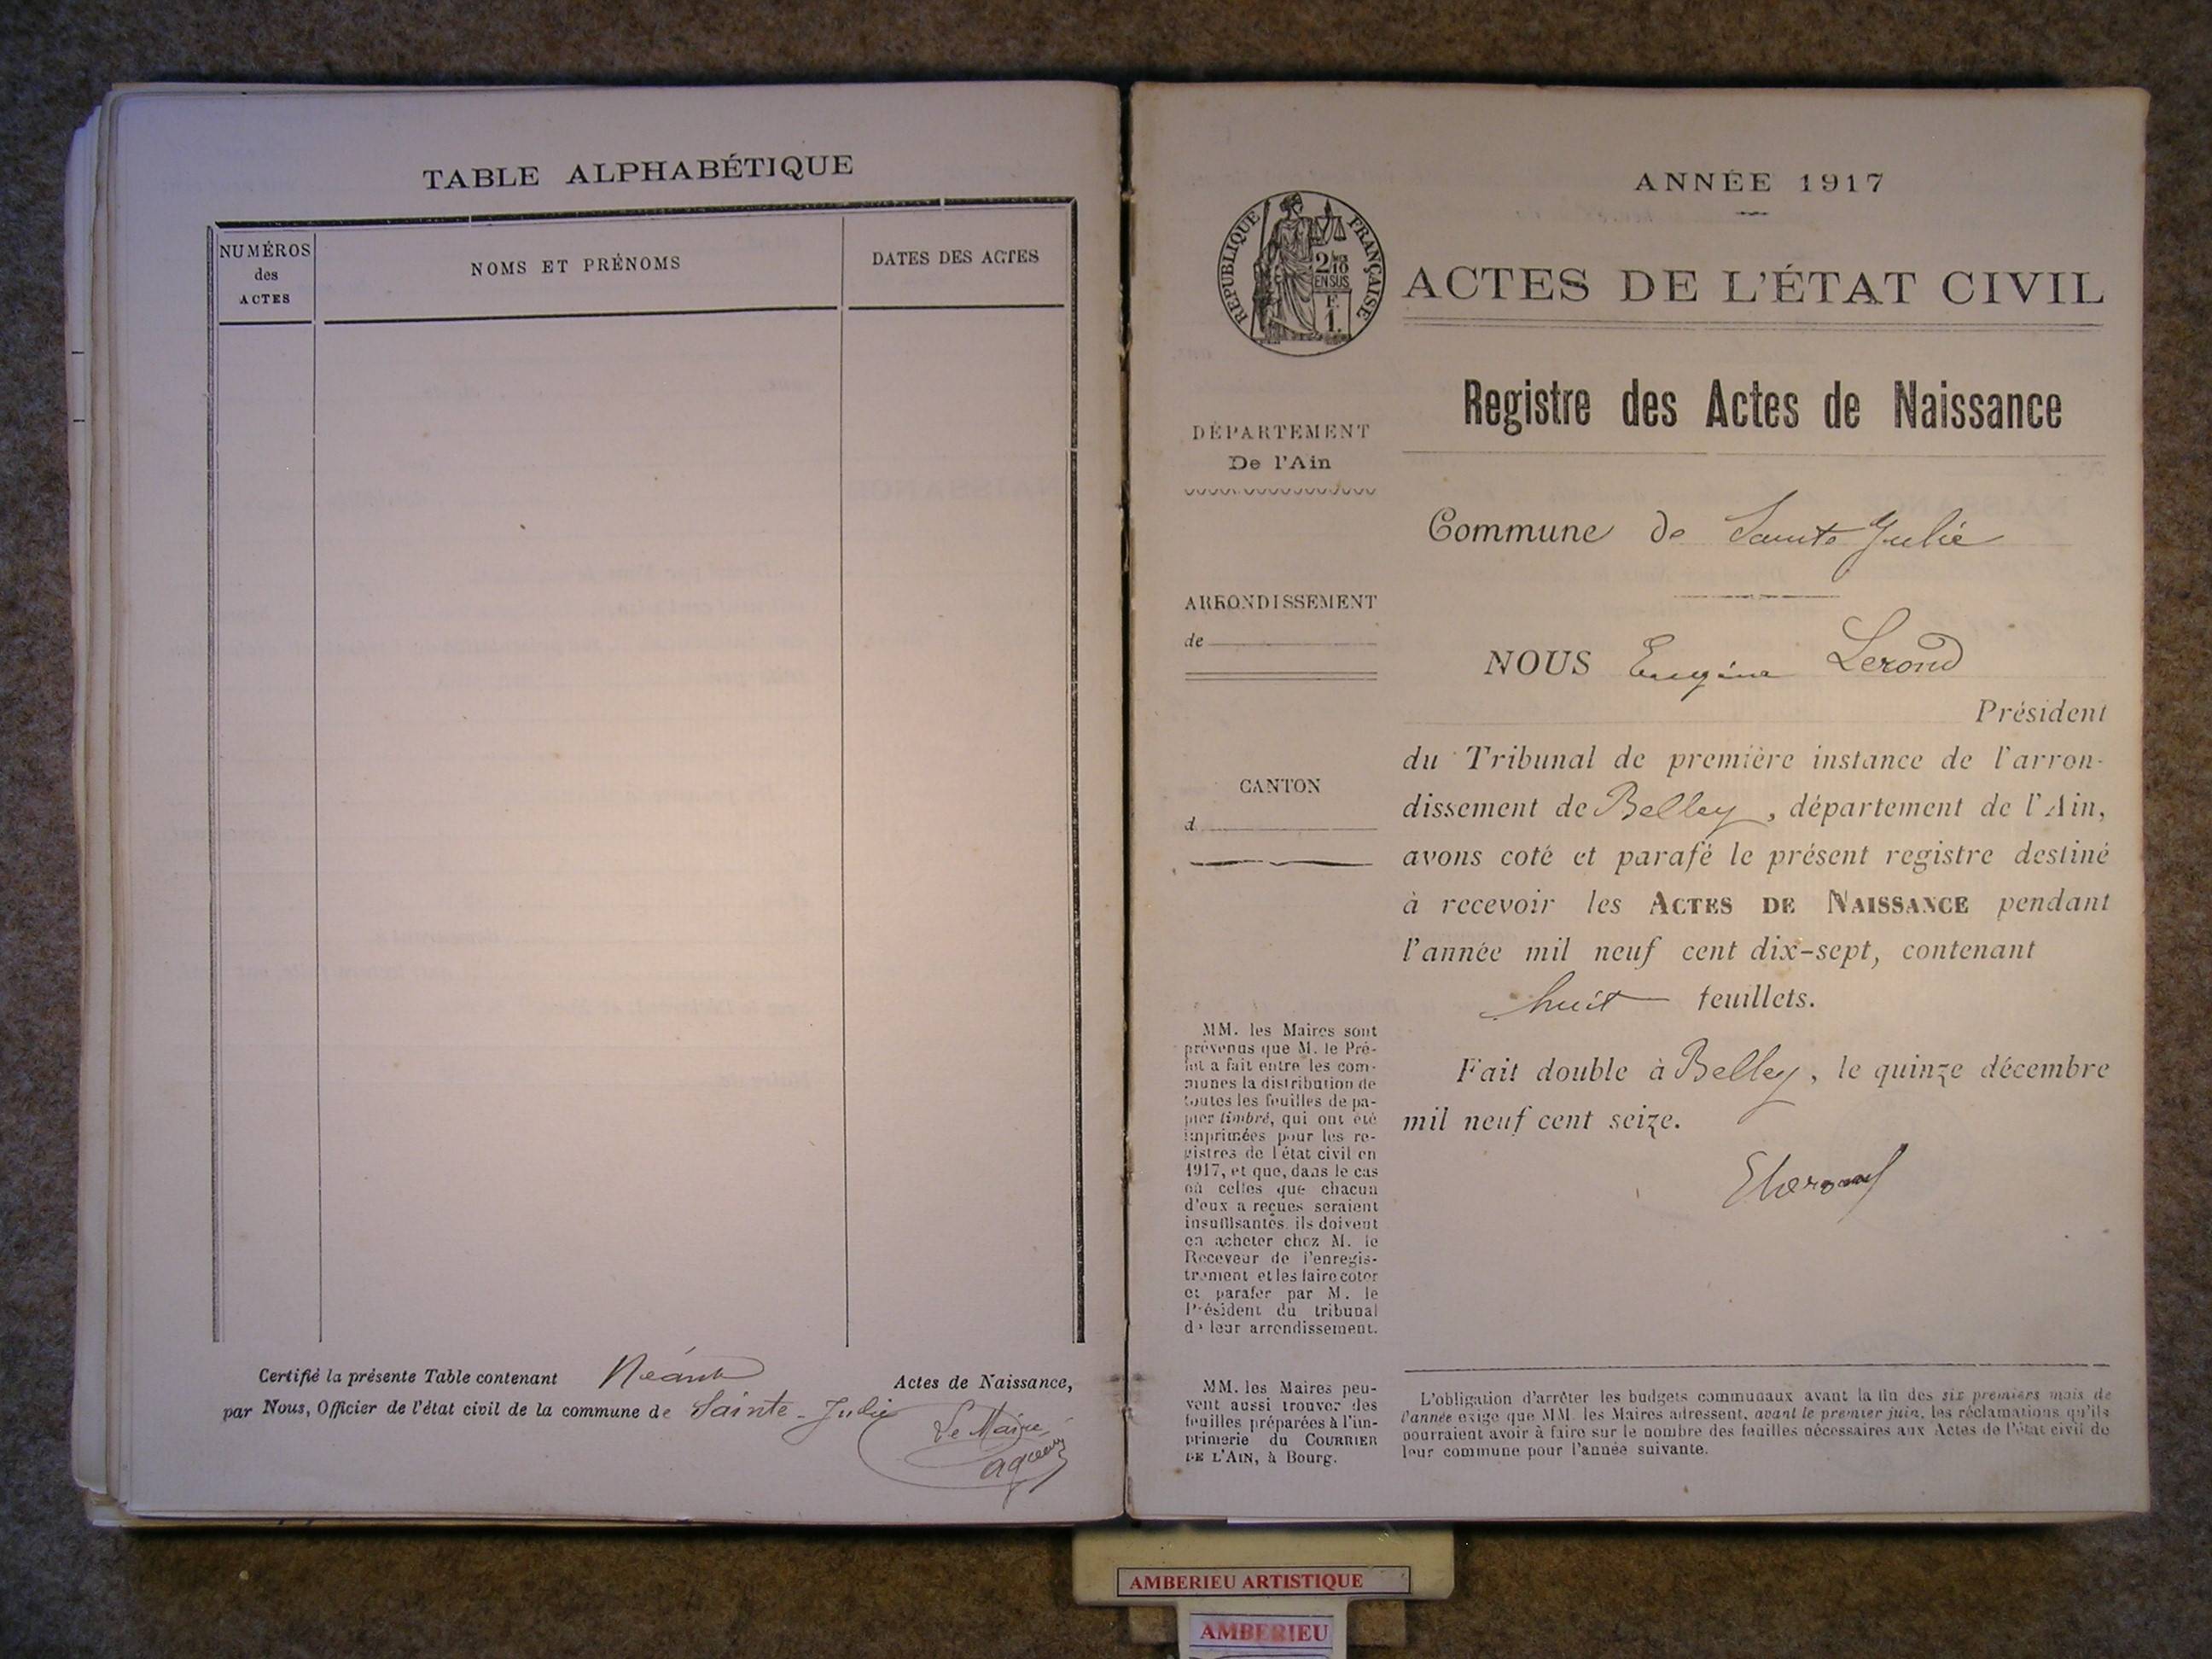 TABLE ALPHABÉTIQUE
NUMÉROS
des
ACTES
NOMS ET PRÉNOMS
DATES DES ACTES
Certifié la présente Table contenant Néant Actes de Naissance,
par Nous, Officier de l'état civil de la commune de Sainte-Julie
Le Maire,
ANNÉE 1917
RÉPUBLIQUE FRANÇAISE
2/10
EN SUS
F.
1.
ACTES DE L'ÉTAT CIVIL
Registre des Actes de Naissance
DÉPARTEMENT
De l'Ain
Commune de Sainte Julie
ARRONDISSEMENT
de
NOUS Eugène Lerond
Président
du Tribunal de première instance de l'arron-
dissement de Belley, département de l'Ain,
avons coté et parafé le présent registre destiné
à recevoir les ACTES DE NAISSANCE pendant
l'année mil neuf cent dix-sept, contenant
huit feuillets.
CANTON
d
Fait double à Belley, le quinze décembre
mil neuf cent seize.
MM. les Maires sont
prévenus que M. le Pré-
fet a fait entre les com-
munes la distribution de
toutes les feuilles de pa-
pier timbré, qui ont été
imprimées pour les re-
gistres de l'état civil en
1917, et que, dans le cas
où celles que chacun
d'eux a reçues seraient
insuffisantes, ils doivent
en acheter chez M. le
Receveur de l'enregis-
trement et les faire coter
et parafer par M. le
Président du tribunal
de leur arrondissement.
MM. les Maires peu-
vent aussi trouver des
feuilles préparées à l'im-
primerie du COURRIER
DE L'AIN, à Bourg.
L'obligation d'arrêter les budgets communaux avant la fin des six premiers mois de
l'année exige que MM. les Maires adressent, avant le premier juin, les réclamations qu'ils
pourraient avoir à faire sur le nombre des feuilles nécessaires aux Actes de l'état civil de
leur commune pour l'année suivante.
AMBERIEU ARTISTIQUE
AMBERIEU